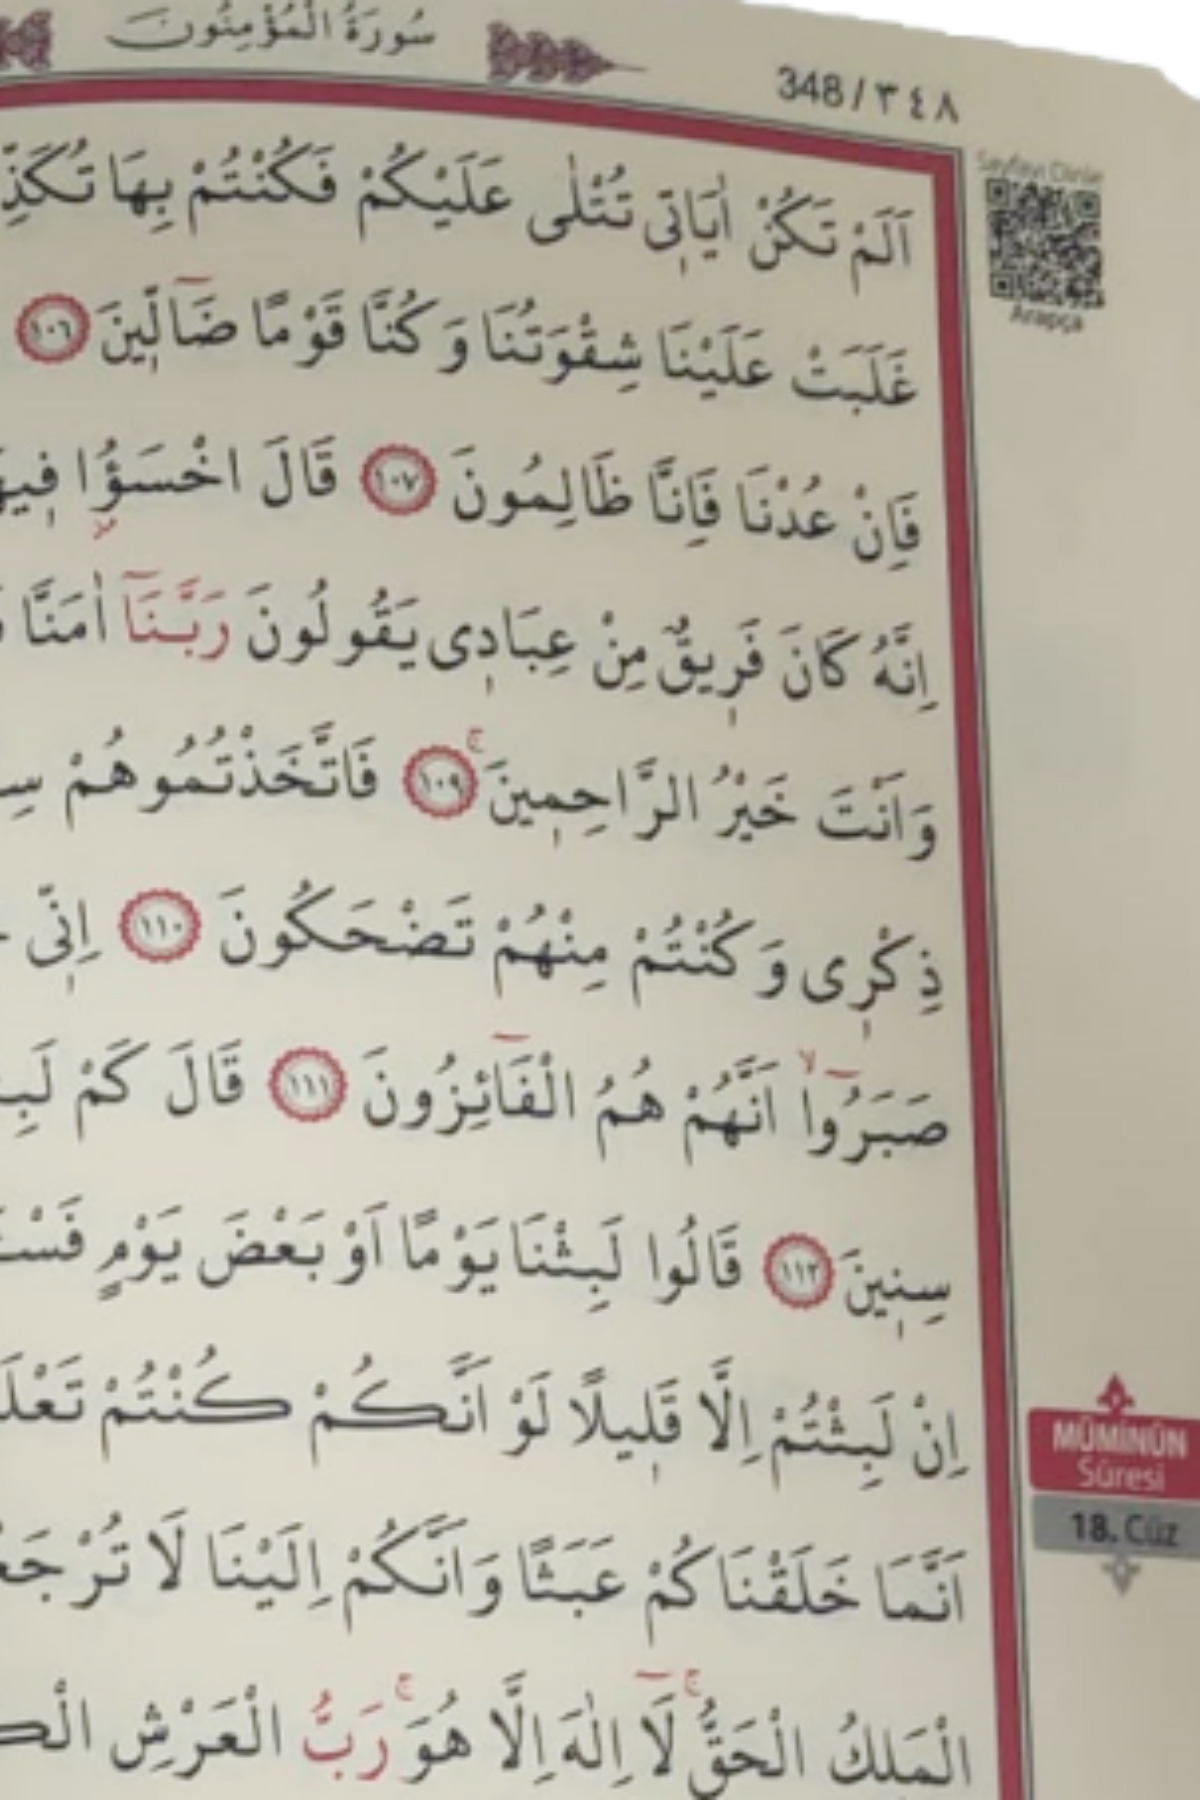 سُورَةُ الْمُؤْمِنُونَ
348 / ٣٤٨
Sayfayı Dinle
Arapça
اَلَمْ تَكُنْ اٰيَاتٖي تُتْلٰى عَلَيْكُمْ فَكُنْتُمْ بِهَا
غَلَبَتْ عَلَيْنَا شِقْوَتُنَا وَكُنَّا قَوْمًا ضَٓالّٖينَ ١٠٦
فَاِنْ عُدْنَا فَاِنَّا ظَالِمُونَ ١٠٧ قَالَ اخْسَؤُ۫ا
اِنَّهُ كَانَ فَرٖيقٌ مِنْ عِبَادٖي يَقُولُونَ رَبَّنَٓا اٰمَنَّا
وَاَنْتَ خَيْرُ الرَّاحِمٖينَۚ ١٠٩ فَاتَّخَذْتُمُوهُمْ
ذِكْرٖي وَكُنْتُمْ مِنْهُمْ تَضْحَكُونَ ١١٠ اِنّٖي
صَبَرُٓواۙ اَنَّهُمْ هُمُ الْفَٓائِزُونَ ١١١ قَالَ كَمْ
سِنٖينَ ١١٢ قَالُوا لَبِثْنَا يَوْمًا اَوْ بَعْضَ يَوْمٍ
اِنْ لَبِثْتُمْ اِلَّا قَلٖيلًا لَوْ اَنَّكُمْ كُنْتُمْ
اَنَّمَا خَلَقْنَاكُمْ عَبَثًا وَاَنَّكُمْ اِلَيْنَا لَا
الْمَلِكُ الْحَقُّۚ لَٓا اِلٰهَ اِلَّا هُوَۚ رَبُّ الْعَرْشِ
MÜMİNÛN
Sûresi
18. Cüz